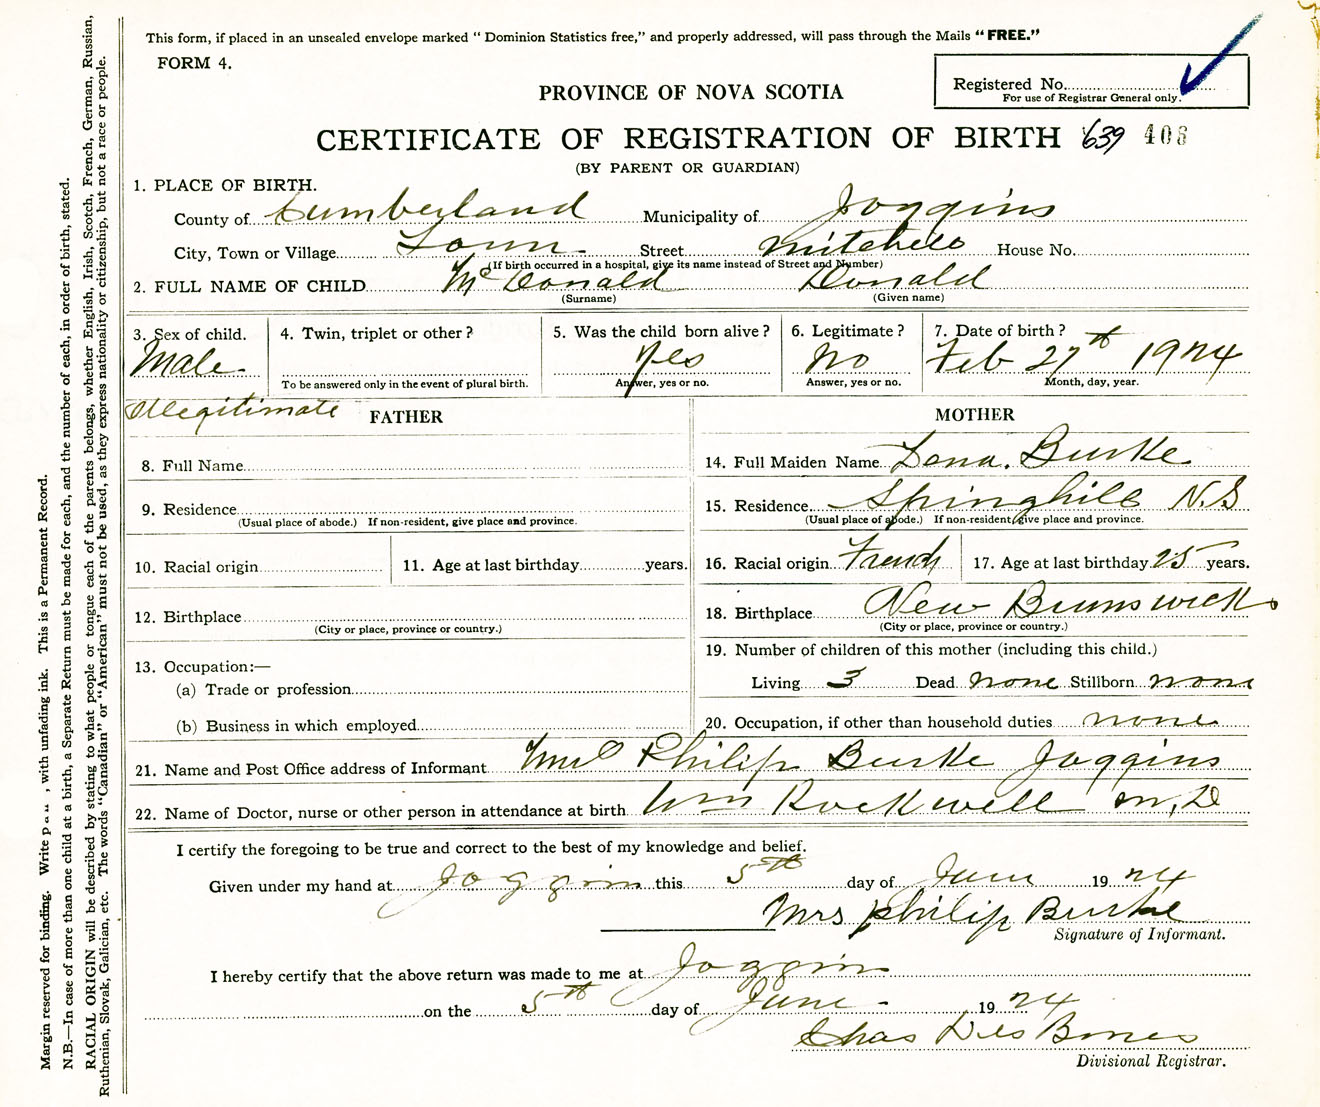 This form, if placed in an unsealed envelope marked " Dominion Statistics free," and properly addressed, will pass through the Mails "FREE."
FORM 4.
Registered No.
For use of Registrar General only.
PROVINCE OF NOVA SCOTIA
CERTIFICATE OF REGISTRATION OF BIRTH 639 408
(BY PARENT OR GUARDIAN)
1. PLACE OF BIRTH.
County of Cumberland Municipality of Joggins
City, Town or Village Town Street Mitchell House No.
(If birth occurred in a hospital, give its name instead of Street and Number)
2. FULL NAME OF CHILD McDonald Donald
(Surname) (Given name)
3. Sex of child. 4. Twin, triplet or other? 5. Was the child born alive? 6. Legitimate? 7. Date of birth?
Male Yes No Feb 27th 1924
To be answered only in the event of plural birth. Answer, yes or no. Answer, yes or no. Month, day, year.
Illegitimate FATHER
8. Full Name
9. Residence
(Usual place of abode.) If non-resident, give place and province.
10. Racial origin 11. Age at last birthday years.
12. Birthplace
(City or place, province or country.)
13. Occupation:—
(a) Trade or profession
(b) Business in which employed
MOTHER
14. Full Maiden Name Lena. Burke
15. Residence Springhill N.S
(Usual place of abode.) If non-resident, give place and province.
16. Racial origin French 17. Age at last birthday 25 years.
18. Birthplace New Brunswick
(City or place, province or country.)
19. Number of children of this mother (including this child.)
Living 3 Dead none Stillborn none
20. Occupation, if other than household duties none
21. Name and Post Office address of Informant Mrs Philip Burke Joggins
22. Name of Doctor, nurse or other person in attendance at birth Wm Rockwell M.D
I certify the foregoing to be true and correct to the best of my knowledge and belief.
Given under my hand at Joggins this 5th day of June 1924
Mrs Philip Burke
Signature of Informant.
I hereby certify that the above return was made to me at Joggins
on the 5th day of June 1924
Chas Des Bones
Divisional Registrar.
Margin reserved for binding. Write , with unfading ink. This is a Permanent Record.
N.B.—In case of more than one child at a birth, a Separate Return must be made for each, and the number of each, in order of birth, stated.
RACIAL ORIGIN will be described by stating to what people or tongue each of the parents belongs, whether English, Irish, Scotch, French, German, Russian,
Ruthenian, Slovak, Galician, etc. The words "Canadian" or "American" must not be used, as they express nationality or citizenship, but not a race or people.